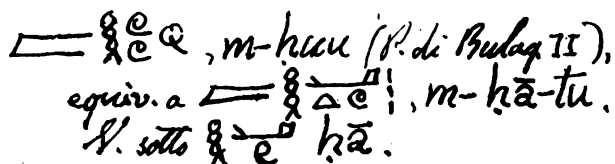 𓐝𓎛𓏲𓏲 , m-ḥuu (P. di Bulaq II),
equiv. a 𓐝𓎛 , m-ḥā-tu.
V. sotto 𓎛 ḥā.